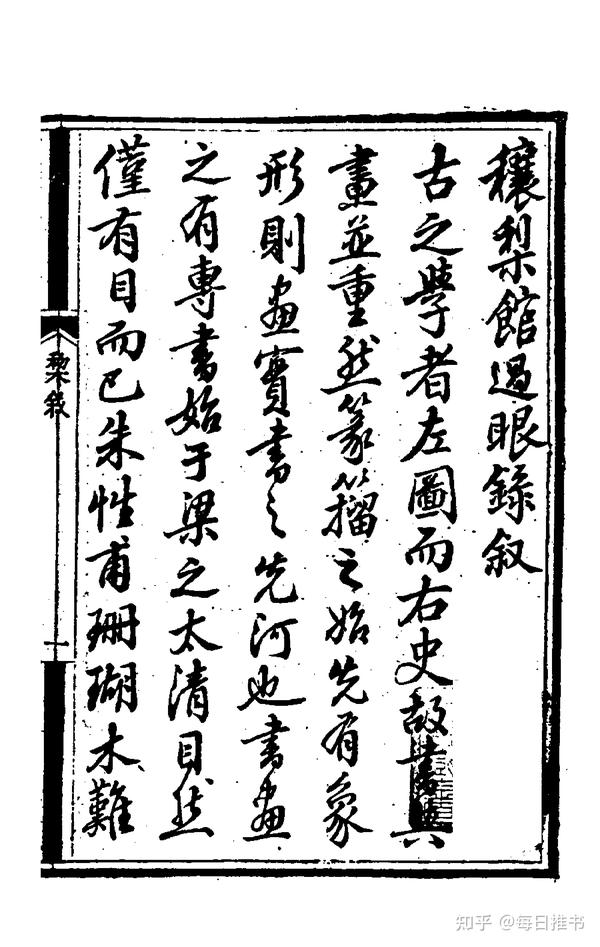 穰梨館過眼錄叙
古之學者左圖而右史故書與
畫並重然篆籀之始先有象
形則畫實書之先河也書畫
之有專書始于梁之太清目然
僅有目而已朱性甫珊瑚木難
梨叙
一
知乎 @每日推书